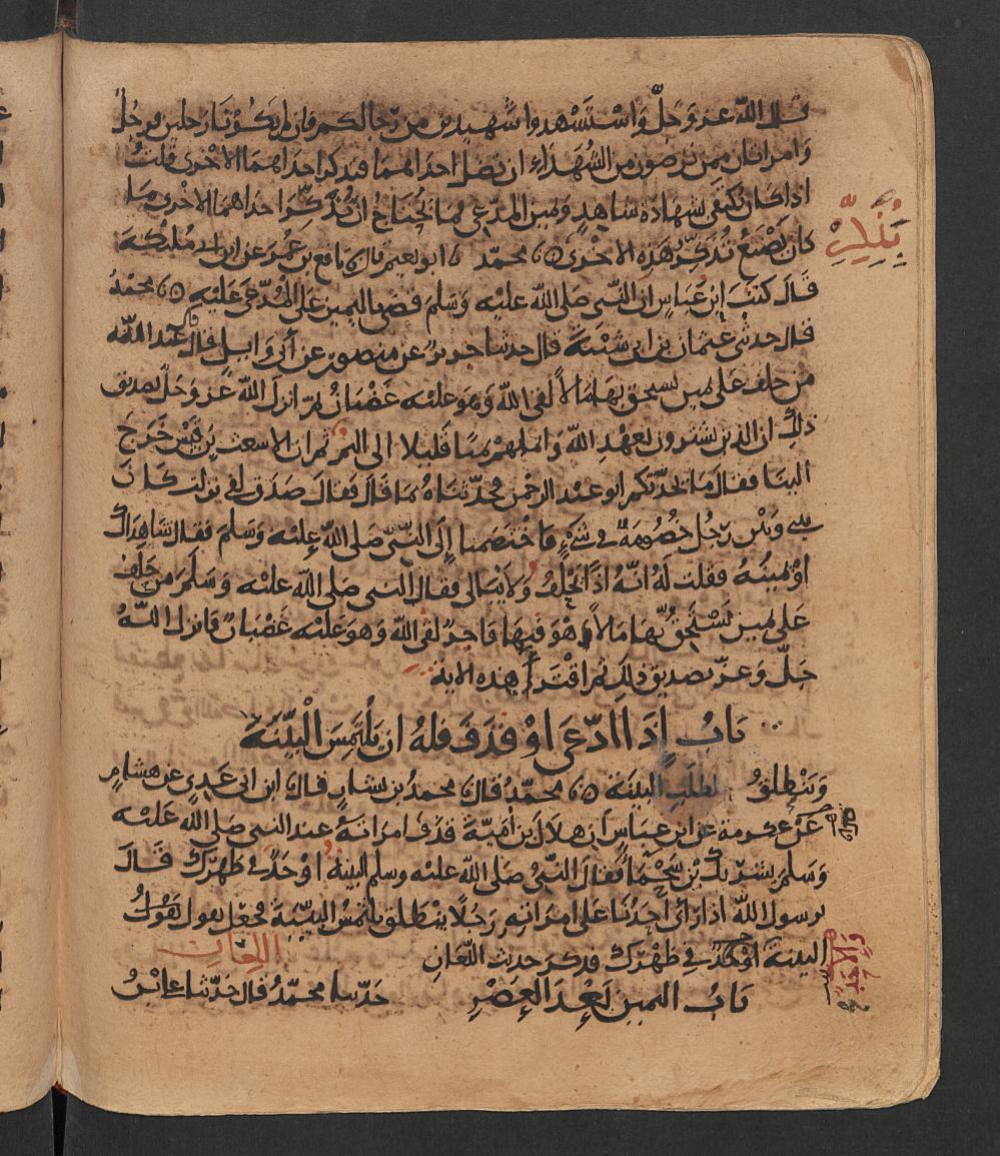 قال الله عز وجل واستشهدوا شهيدين من رجالكم فان لم يكونا رجلين فرجل
وامراتان ممن ترضون من الشهداء ان تضل احداهما فتذكر احداهما الاخرى قلت
اذا كان يكتفى بشهادة شاهد ويمين المدعي فما يحتاج ان تذكر احداهما الاخرى ما
كان يصنع بذكر هذه الاخرى محمد ابو نعيم قال نافع بن عمر عن ابن ابي مليكة
قال كتب ابن عباس ان النبي صلى الله عليه وسلم قضى باليمين على المدعى عليه محمد
قال حدثني عثمان بن ابي شيبة قال حدثنا جرير عن منصور عن ابي وايل قال عبد الله
من حلف على يمين يستحق بها مالا لقي الله وهو عليه غضبان ثم انزل الله عز وجل تصديق
ذلك ان الذين يشترون بعهد الله وايمانهم ثمنا قليلا الى اليم ثم ان الاشعث بن قيس خرج
الينا فقال ما يحدثكم ابو عبد الرحمن فحدثناه بما قال فقال صدق لفي نزلت كان
بيني وبين رجل خصومة في شيء فاختصمنا الى النبي صلى الله عليه وسلم فقال شاهداك
او يمينه فقلت له انه اذا يحلف ولا يبالي فقال النبي صلى الله عليه وسلم من حلف
على يمين يستحق بها مالا وهو فيها فاجر لقي الله وهو عليه غضبان فانزل الله
جل وعز تصديق ذلك ثم اقترأ هذه الاية
باب إذا ادعى او قذف فله ان يلتمس البينة
وينطلق لطلب البينة محمد قال محمد بن بشار قال ابن ابي عدي عن هشام
عن عكرمة عن ابن عباس ان هلال بن امية قذف امراته عند النبي صلى الله عليه
وسلم بشريك بن سحما فقال النبي صلى الله عليه وسلم البينة او حد في ظهرك قال
يرسول الله اذا رأى احدنا على امراته رجلا ينطلق يلتمس البينة فجعل يقول
البينة او حد في ظهرك فذكر حديث اللعان
باب اليمين بعد العصر حدثنا محمد قال حدثنا علي بن